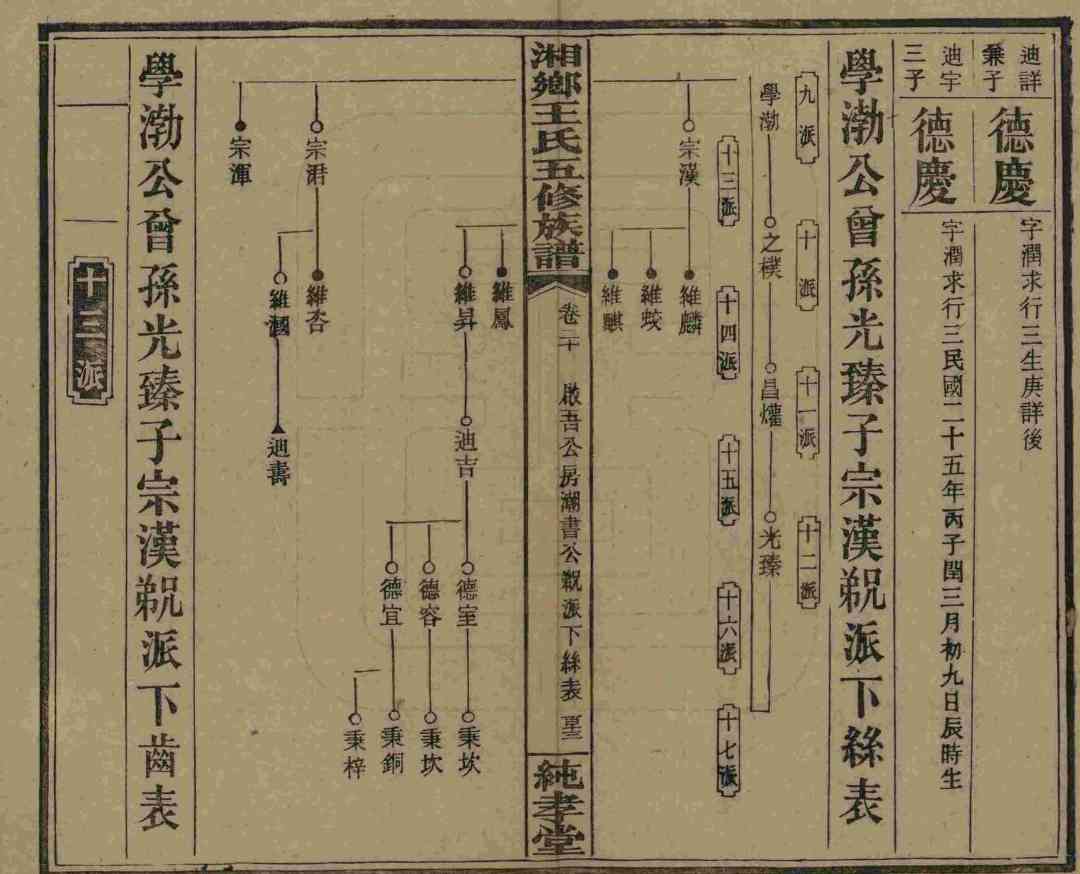 迪詳
兼子
德慶
字潤求行三生庚詳後
迪宇
三子
德慶
字潤求行三民國二十五年丙子閏三月初九日辰時生
學渤公曾孫光臻子宗漢 派下絲表
九派
十派
十一派
十二派
學渤
之樸
昌爟
光臻
十三派
十四派
十五派
十六派
十七派
宗漢
維麟
維蛟
維麒
湘鄉王氏五修族譜
卷二十
啟吾公房湖書公 派下絲表
純孝堂
維鳳
維昇
迪吉
德室
德容
德宜
秉坎
秉坎
秉銅
秉梓
宗涒
維杏
維
迪壽
宗渾
學渤公曾孫光臻子宗漢 派下齒表
十三派